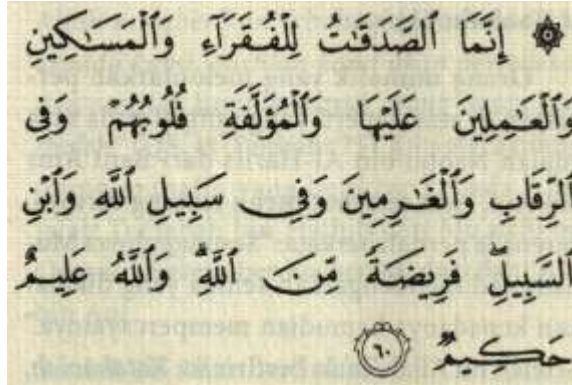 ۞ إِنَّمَا ٱلصَّدَقَـٰتُ لِلْفُقَرَآءِ وَٱلْمَسَـٰكِينِ
وَٱلْعَـٰمِلِينَ عَلَيْهَا وَٱلْمُؤَلَّفَةِ قُلُوبُهُمْ وَفِى
ٱلرِّقَابِ وَٱلْغَـٰرِمِينَ وَفِى سَبِيلِ ٱللَّهِ وَٱبْنِ
ٱلسَّبِيلِ ۖ فَرِيضَةً مِّنَ ٱللَّهِ ۗ وَٱللَّهُ عَلِيمٌ
حَكِيمٌ ٦٠